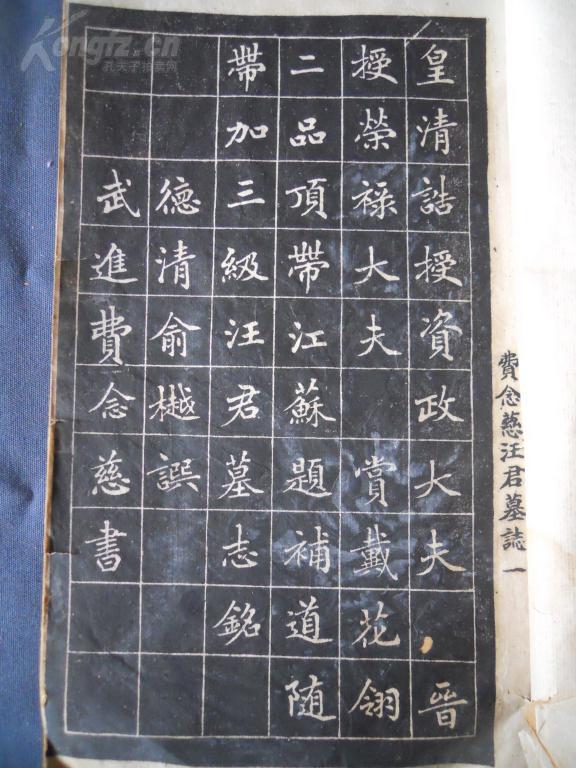 皇清誥授資政大夫晉
授榮祿大夫賞戴花翎
二品頂帶江蘇題補道随
帶加三級汪君墓志銘
德清俞樾譔
武進費念慈書
費念慈汪君墓誌 一
Kongfz.cn
孔夫子拍卖网